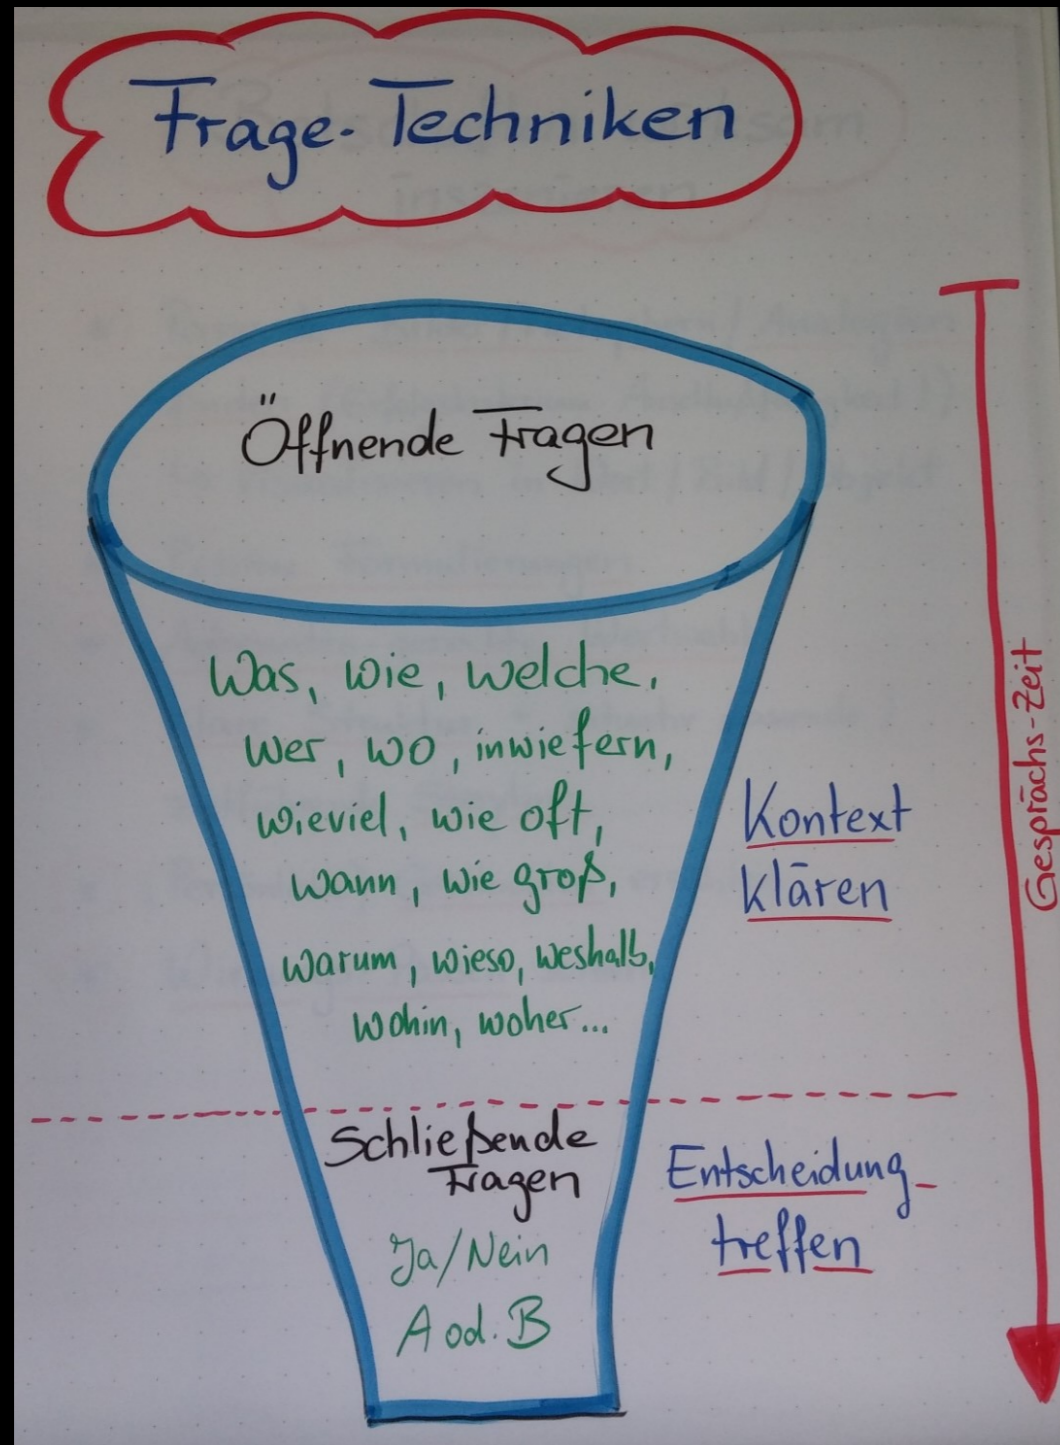 Frage-Techniken
Öffnende Fragen
Was, wie, welche,
wer, wo, inwiefern,
wieviel, wie oft,
wann, wie groß,
warum, wieso, weshalb,
wohin, woher...
Kontext
klären
Gesprächs-Zeit
Schließende
Fragen
Ja/Nein
A od. B
Entscheidung
treffen